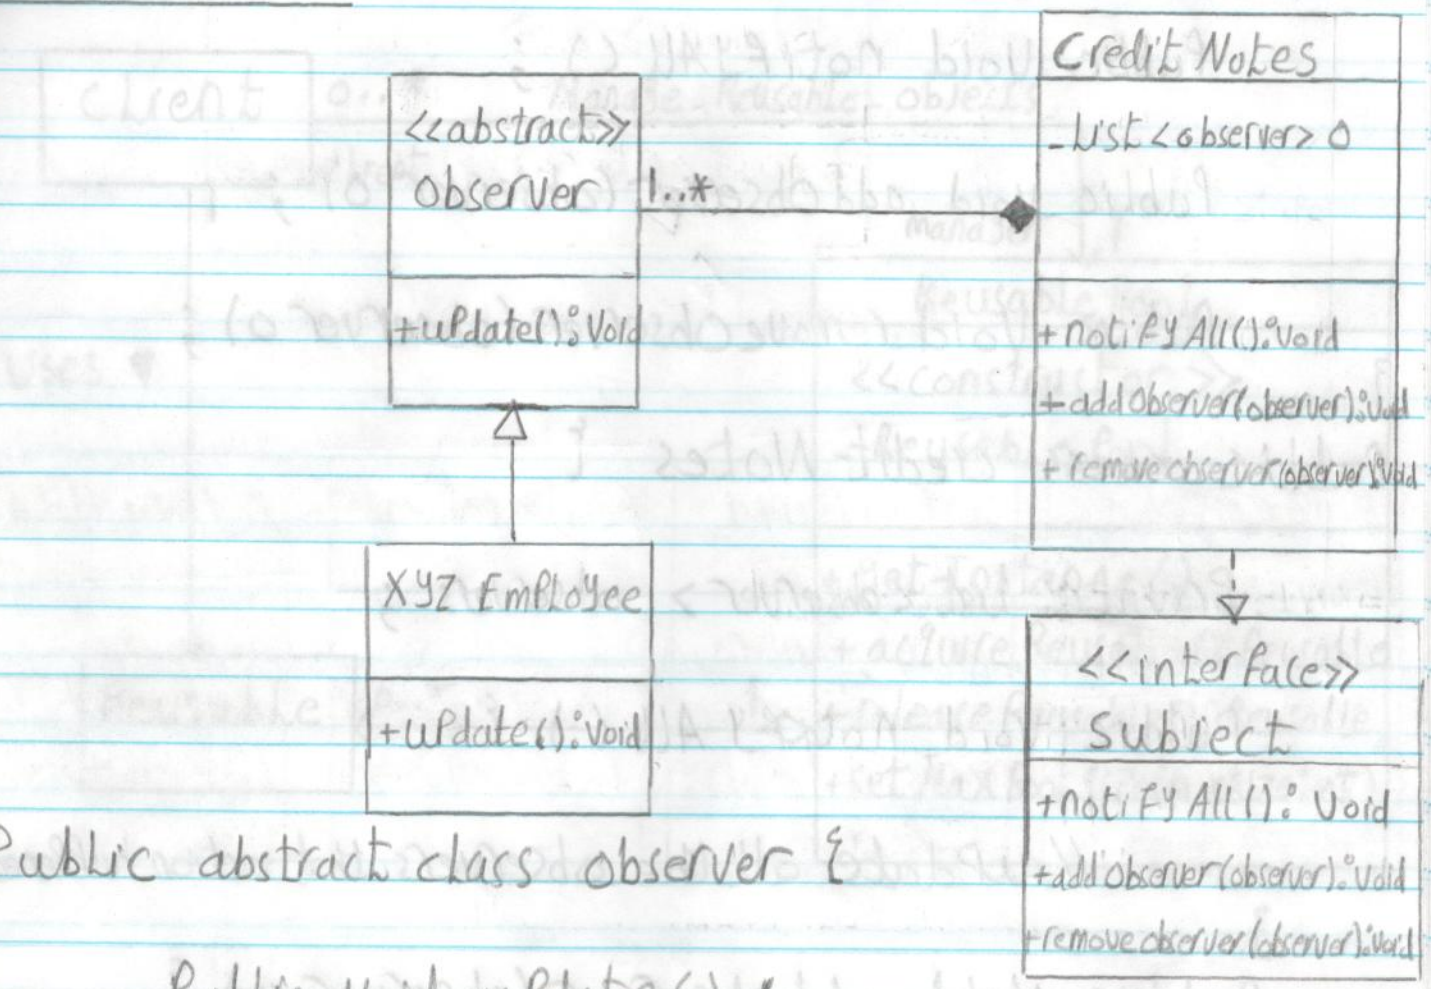 <<abstract>>
observer
+update():void
1..*
Credit Notes
-List<observer> O
+notifyAll():void
+addObserver(observer):void
+removeobserver(observer):void
XYZ Employee
+update():void
<<interface>>
subject
+notifyAll(): void
+addObserver(observer):void
+removeobserver(observer):void
Public abstract class observer {